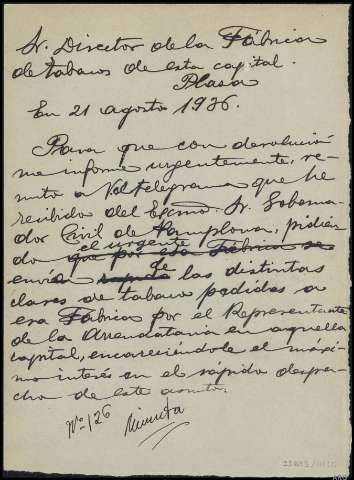 Sr. Director de la Fábrica
de tabacos de esta capital.
Plaza
En 21 agosto 1936.
Para que con devolución
me informe urgentemente, re-
mito a Vd telegrama que he
recibido del Excmo. Sr. Goberna-
dor Civil de Pamplona, pidien-
do el urgente
que por esa Fábrica se
envío rápido de las distintas
clases de tabaco pedidas a
esa Fábrica por el Representante
de la Arrendataria en aquella
capital, encareciéndole el máxi-
mo interés en el rápido despa-
cho de este asunto.
Nº 126
Minuta